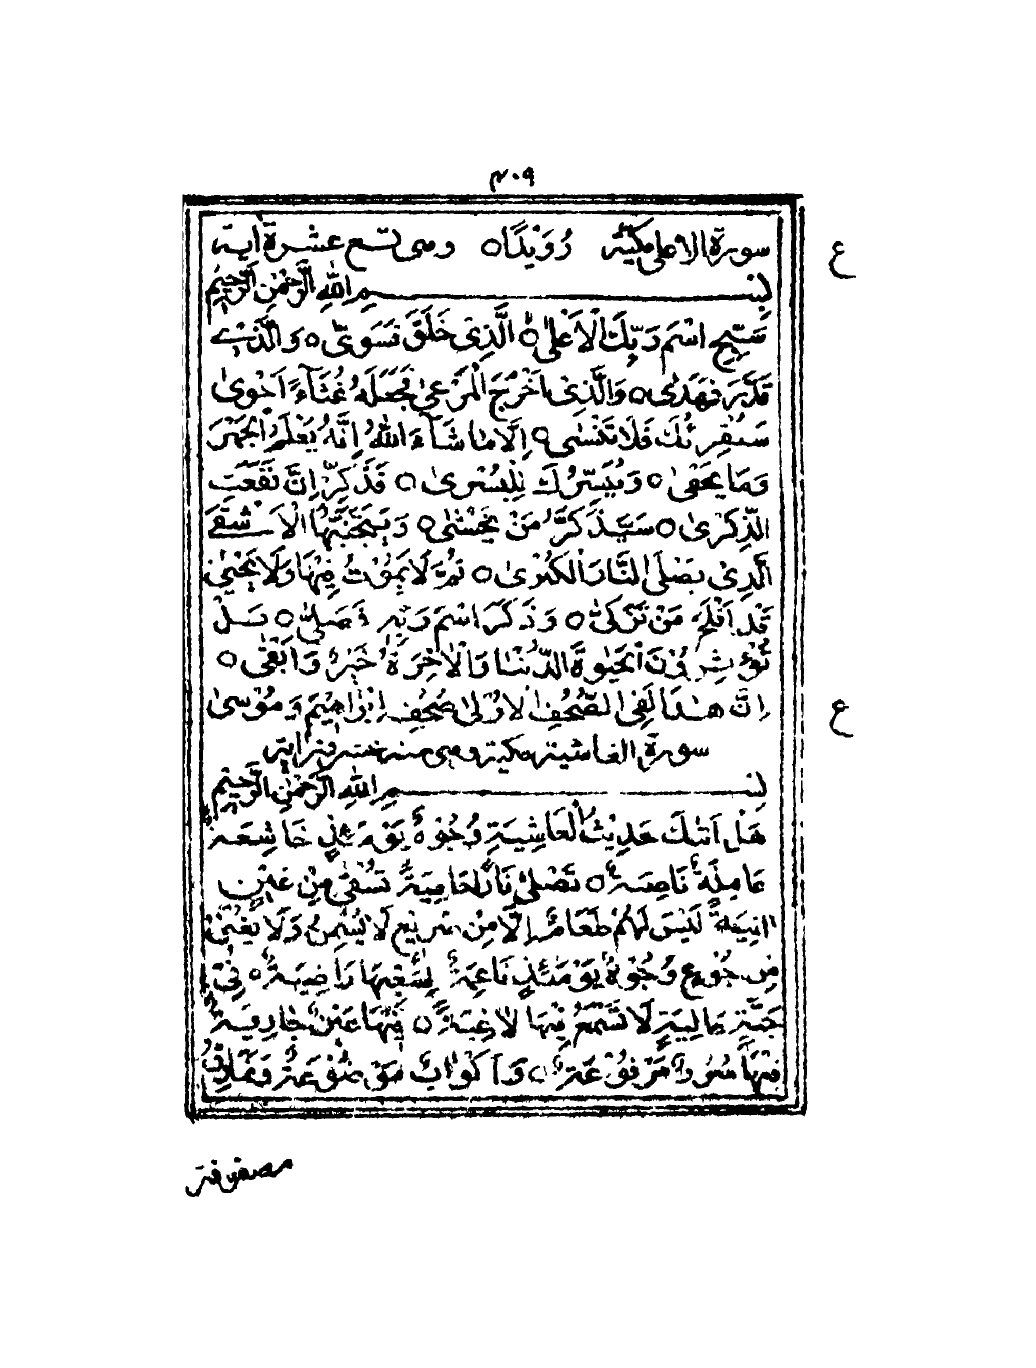 ٣٠٩
سورة الاعلى مكية رُوَيْدًا ○ وهى تسع عشرة اية
ع
بِسْمِ اللّٰهِ الرَّحْمٰنِ الرَّحِيْمِ
سَبِّحِ اسْمَ رَبِّكَ الْاَعْلٰى ○ الَّذِىْ خَلَقَ فَسَوّٰى ○ وَالَّذِىْ
قَدَّرَ فَهَدٰى ○ وَالَّذِىْ اَخْرَجَ الْمَرْعٰى فَجَعَلَهُ غُثَآءً اَحْوٰى
سَنُقْرِئُكَ فَلَا تَنْسٰى ○ اِلَّا مَا شَآءَ اللّٰهُ اِنَّهُ يَعْلَمُ الْجَهْرَ
وَمَا يَخْفٰى ○ وَنُيَسِّرُكَ لِلْيُسْرٰى ○ فَذَكِّرْ اِنْ نَّفَعَتِ
الذِّكْرٰى ○ سَيَذَّكَّرُ مَنْ يَّخْشٰى ○ وَيَتَجَنَّبُهَا الْاَشْقَى
الَّذِىْ يَصْلَى النَّارَ الْكُبْرٰى ○ ثُمَّ لَا يَمُوْتُ فِيْهَا وَلَا يَحْيٰى
قَدْ اَفْلَحَ مَنْ تَزَكّٰى ○ وَذَكَرَ اسْمَ رَبِّهٖ فَصَلّٰى ○ بَلْ
تُؤْثِرُوْنَ الْحَيٰوةَ الدُّنْيَا وَالْاٰخِرَةُ خَيْرٌ وَّاَبْقٰى ○
اِنَّ هٰذَا لَفِى الصُّحُفِ الْاُوْلٰى صُحُفِ اِبْرَاهِيْمَ وَمُوْسٰى
ع
سورة الغاشية مكية وهى ست وعشرون اية
بِسْمِ اللّٰهِ الرَّحْمٰنِ الرَّحِيْمِ
هَلْ اَتٰىكَ حَدِيْثُ الْغَاشِيَةِ وُجُوْهٌ يَّوْمَئِذٍ خَاشِعَةٌ
عَامِلَةٌ نَّاصِبَةٌ ○ تَصْلٰى نَارًا حَامِيَةً تُسْقٰى مِنْ عَيْنٍ
اٰنِيَةٍ لَيْسَ لَهُمْ طَعَامٌ اِلَّا مِنْ ضَرِيْعٍ لَا يُسْمِنُ وَلَا يُغْنِىْ
مِنْ جُوْعٍ وُجُوْهٌ يَّوْمَئِذٍ نَّاعِمَةٌ لِسَعْيِهَا رَاضِيَةٌ ○ فِىْ
جَنَّةٍ عَالِيَةٍ لَا تَسْمَعُ فِيْهَا لَاغِيَةً ○ فِيْهَا عَيْنٌ جَارِيَةٌ
فِيْهَا سُرُرٌ مَّرْفُوْعَةٌ ○ وَّاَكْوَابٌ مَّوْضُوْعَةٌ وَّنَمَارِقُ
مصفوفة